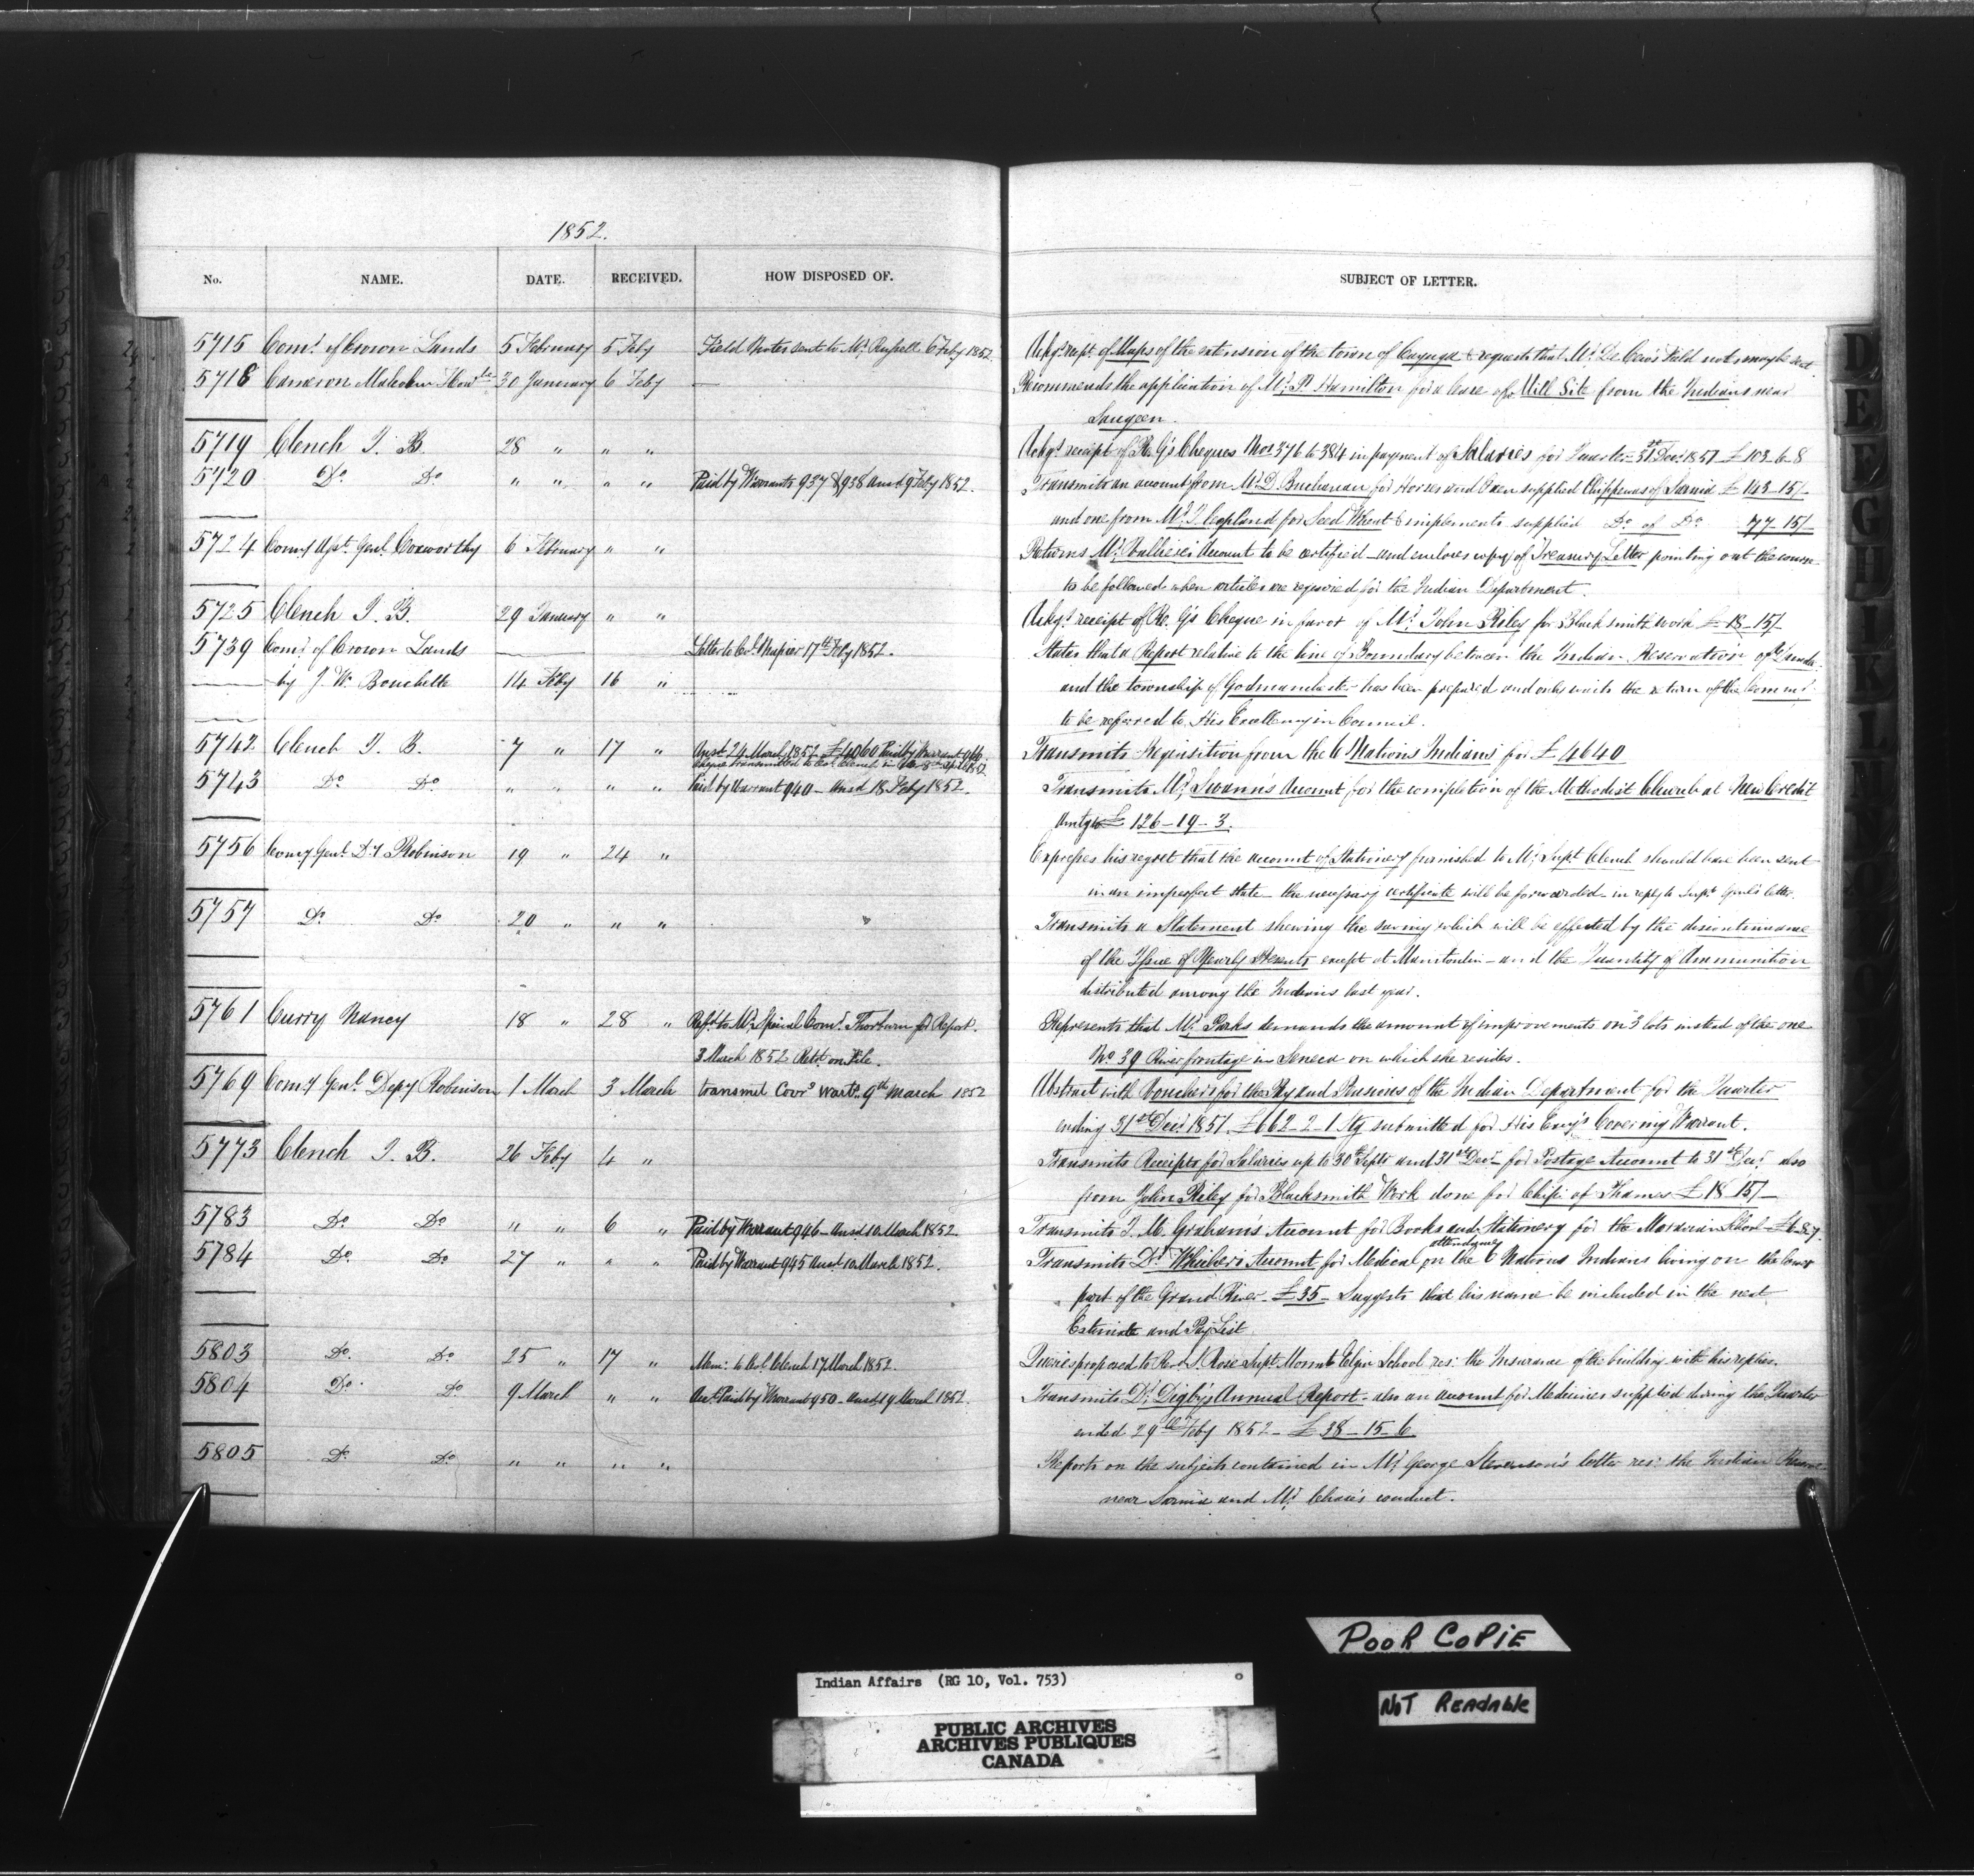 1852.
No. NAME. DATE. RECEIVED. HOW DISPOSED OF. SUBJECT OF LETTER.
5715 Comr. of Crown Lands 5 February 5 Feby Field Notes sent to Mr. Russell 6 Feby 1852. Ackgs. rect. of Maps of the extension of the town of Cayuga & requests that Mr. De Cew's field notes may be sent
5718 Cameron Malcolm Honble 30 January 6 Feby — Recommends the application of Mr. P. Hamilton for a lease of a Mill Site from the Indians near
Saugeen.
5719 Clench J. B. 28 " " " Ackgs. receipt of R. G's Cheques Nos 376 to 384 in payment of Salaries for Quarter 31st Decr. 1851 £103-6-8
5720 Do Do " " " " Paid by Warrants 937 & 938 Ansd 9 Feby 1852. Transmits an account from Mr. D. Buchanan for Horses and Oxen supplied Chippewas of Sarnia £143-15/-
and one from Mr. T. Copland for Seed Wheat & implements supplied Do of Do 77-15/-
5724 Comy Asst. Genl. Coxworthy 6 February " " Returns Mr. Account to be certified - and encloses copy of Treasury Letter pointing out the course
to be followed when articles are required for the Indian Department.
5725 Clench J. B. 29 January " " Ackgs. receipt of R. G's Cheque in favor of Mr. John Riley for Blacksmith work £18-15/-
5739 Comr. of Crown Lands — Letter to Col. Napier 17th Feby 1852. States that a Report relative to the line of Boundary between the Indian Reservation of Dundee
by J. W. Bouchette 14 Feby 16 " and the township of Godmanchester has been prepared and only waits the return of the Commr.
to be referred to His Excellency in Council.
5742 Clench J. B. 7 " 17 " Ansd. 24 March 1852 £4060 Paid by Warrant 966 Transmits Requisition from the 6 Nations Indians for £4640
Cheque transmitted to Col. Clench in 8th April 1852
5743 Do Do " " " " Paid by Warrant 940 - Ansd 18 Feby 1852. Transmits Mr. Swann's Account for the completion of the Methodist Church at New Credit
Amtg to £126-19-3.
5756 Comy Genl. Dy Robinson 19 " 24 " Expresses his regret that the account of Stationery furnished to Mr. Supt. Clench should have been sent
in an imperfect state - the necessary certificate will be forwarded - in reply to Supt. Genl's letter.
5757 Do Do 20 " " " Transmits a Statement shewing the saving which will be effected by the discontinuance
of the Issue of Yearly Presents except at Manitoulin - and the Quantity of Ammunition
distributed among the Indians last year.
5761 Curry Nancy 18 " 28 " Refd. to Mr. Special Comr. Thorburn for Report. Represents that Mr. Parks demands the amount of improvements on 3 lots instead of the one
3 March 1852 Retd. on File. No. 39 River frontage in Seneca on which she resides.
5769 Comy Genl. Depy Robinson 1 March 3 March transmd Covg Wart. 9th March 1852 Abstract with Vouchers for the Pay and Pensions of the Indian Department for the Quarter
ending 31st Decr. 1851 £662-2-1 Stg submitted for His Excy's Covering Warrant.
5773 Clench J. B. 26 Feby 4 " Transmits Receipts for Salaries up to 30th Septr and 31st Decr. for Postage Account to 31st Decr. also
from John Riley for Blacksmith Work done for Chips. of Thames £18-15/-
5783 Do Do " " 6 " Paid by Warrant 946 - Ansd 10 March 1852. Transmits J. M. Graham's Account for Books and Stationery for the Moravian School
5784 Do Do 27 " " " Paid by Warrant 945 Ansd 10 March 1852. Transmits Dr. Account for Medical attendance on the 6 Nations Indians living on the lower
part of the Grand River - £35 - Suggests that his name be included in the next
Estimate and Pay List
5803 Do. Do 25 " 17 " Mem: to Col. Clench 17 March 1852. Queries proposed to Revd S. Rose Supt Mount Elgin School res: the Insurance of the building with his replies.
5804 Do Do 9 March " " Acct. Paid by Warrant 950 - Ansd 19 March 1852. Transmits Dr. Digby's Annual Report - also an account for Medicines supplied during the Quarter
ended 29th Feby 1852 - £38-15-6
5805 Do Do " " " " Reports on the subjects contained in Mr. George Stevenson's letter res: the Indian Reserve
near Sarnia and Mr. Chase's conduct.
D
E
G
H
K
L
POOR COPIE
NOT READABLE
Indian Affairs (RG 10, Vol. 753)
PUBLIC ARCHIVES
ARCHIVES PUBLIQUES
CANADA